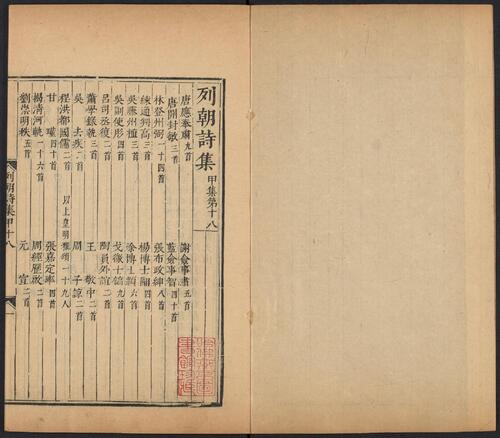 列朝詩集 甲集第十八
唐應奉肅九首 謝僉事肅五首
唐開封敏三首 藍僉事智四十首
林登州弼一十四首 張布政紳八首
練通判高三首 楊博士翮四首
吳蘇州植三首 徐博士六首
吳副使彤四首 戈徵士鎬九首
呂司丞復二首 陶員外誼二首
蕭學錄執三首 王敬中二首
吳去疾二首 周子諒二首
程洪都國儒二首 以上皇明雅頌一十九人
甘瑾四十首 張嘉定率四首
楊清河一十六首 周經歷啟二首
劉崇明秩五首 元宣二首
列朝詩集甲十八
一